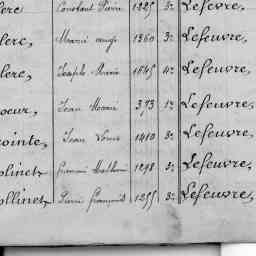 lerc Constant Pierre 1825 3e Lefeuvre,
lerc, Marie ange 1360 3e Lefeuvre,
lerc, Joseph Marie 1645 4e Lefeuvre,
oeur, Jean Marie 373 1e Lefeuvre,
ointe, Jean Louis 1410 3e Lefeuvre,
olinet, François Mathurin 1298 3e Lefeuvre,
ollinet, Pierre François 1255 3e Lefeuvre,